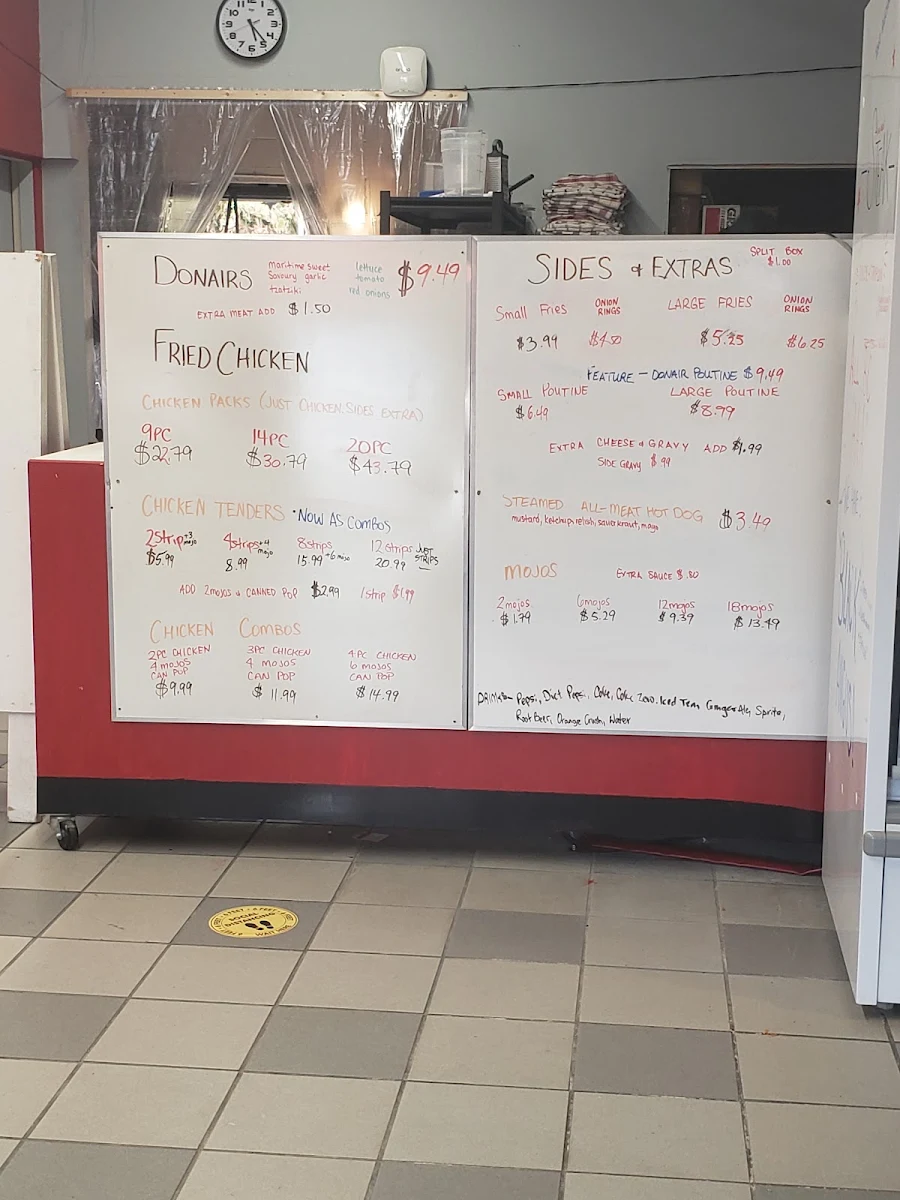 DONAIRS
maritime sweet
savoury garlic
tzatziki
lettuce
tomato
red onions
$9.49
EXTRA MEAT ADD $1.50
FRIED CHICKEN
CHICKEN PACKS (JUST CHICKEN. SIDES EXTRA)
9PC 14PC 20PC
$22.79 $30.79 $43.79
CHICKEN TENDERS *NOW AS COMBOS
2strip +3 mojo 4strips +4 mojo 8strips 12 strips JUST STRIPS
$5.99 8.99 15.99 +6 mojo 20.99
ADD 2mojos & CANNED POP $2.99 1strip $1.99
CHICKEN COMBOS
2PC CHICKEN 3PC CHICKEN 4PC CHICKEN
4 MOJOS 4 MOJOS 6 MOJOS
CAN POP CAN POP CAN POP
$9.99 $11.99 $14.99
SIDES & EXTRAS
SPLIT BOX
$1.00
Small Fries ONION RINGS LARGE FRIES ONION RINGS
$3.99 $4.50 $5.25 $6.25
FEATURE - DONAIR POUTINE $9.49
SMALL POUTINE LARGE POUTINE
$6.49 $8.79
EXTRA CHEESE & GRAVY ADD $1.99
SIDE GRAVY $.99
STEAMED ALL-MEAT HOT DOG $3.49
mustard, ketchup, relish, sauerkraut, mayo
MOJOS EXTRA SAUCE $.80
2mojos 6mojos 12mojos 18mojos
$1.79 $5.29 $9.39 $13.49
Pepsi, Diet Pepsi, Coke, Coke Zero, Iced Tea, Gingerale, Sprite,
Root Beer, Orange Crush, Water
SOCIAL
DISTANCING
WAIT HERE